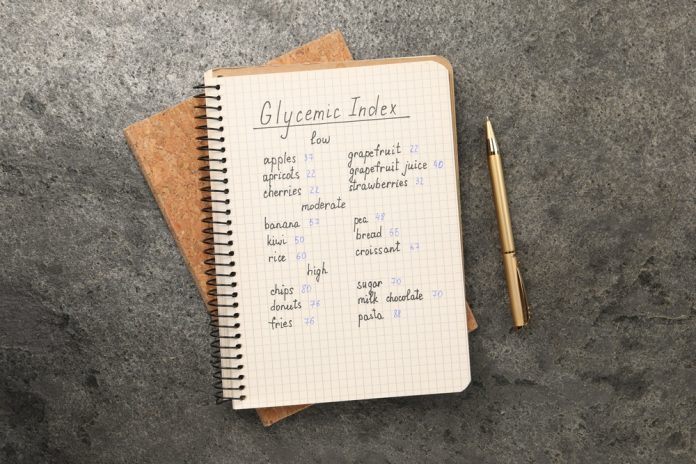 Glycemic Index
low
apples 37 grapefruit 22
apricots 22 grapefruit juice 40
cherries 22 strawberries 32
moderate
banana 57 pea 48
kiwi 50 bread 55
rice 60 croissant 67
high
chips 80 sugar 70
donuts 76 milk chocolate 70
fries 76 pasta